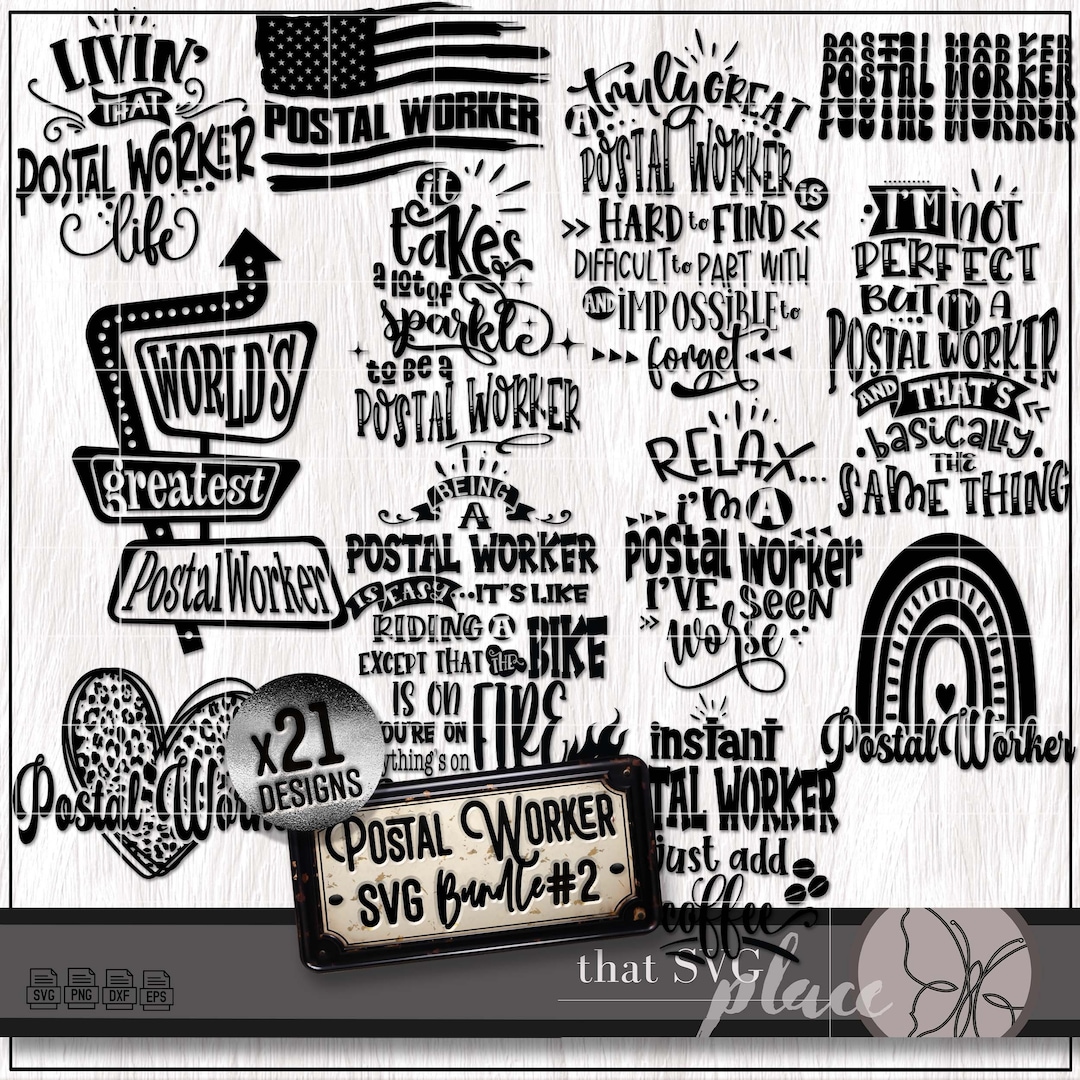 LIVIN'
THAT
POSTAL WORKER
life
POSTAL WORKER
A truly GREAT
POSTAL WORKER IS
>> HARD to FIND <<
DIFFICULT to PART WITH
AND IMPOSSIBLE to
forget
POSTAL WORKER
POSTAL WORKER
POSTAL WORKER
POSTAL WORKER
POSTAL WORKER
it
takes
a lot of
sparkle
to be a
POSTAL WORKER
I'M not
PERFECT
BUT I'M A
POSTAL WORKER
AND THAT'S
basically
THE
SAME THING
WORLD'S
greatest
Postal Worker
BEING
A
POSTAL WORKER
IS EASY...IT'S LIKE
RIDING A BIKE
EXCEPT THAT THE
IS ON FIRE
OU'RE ON
ything's on
RELAX...
i'm A
postal worker
I'VE seen
worse
Postal Worker
Postal Wor
x21
DESIGNS
instant
TAL WORKER
just add
coffee
POSTAL WORKER
SVG Bundle #2
SVG PNG DXF EPS
that SVG
place